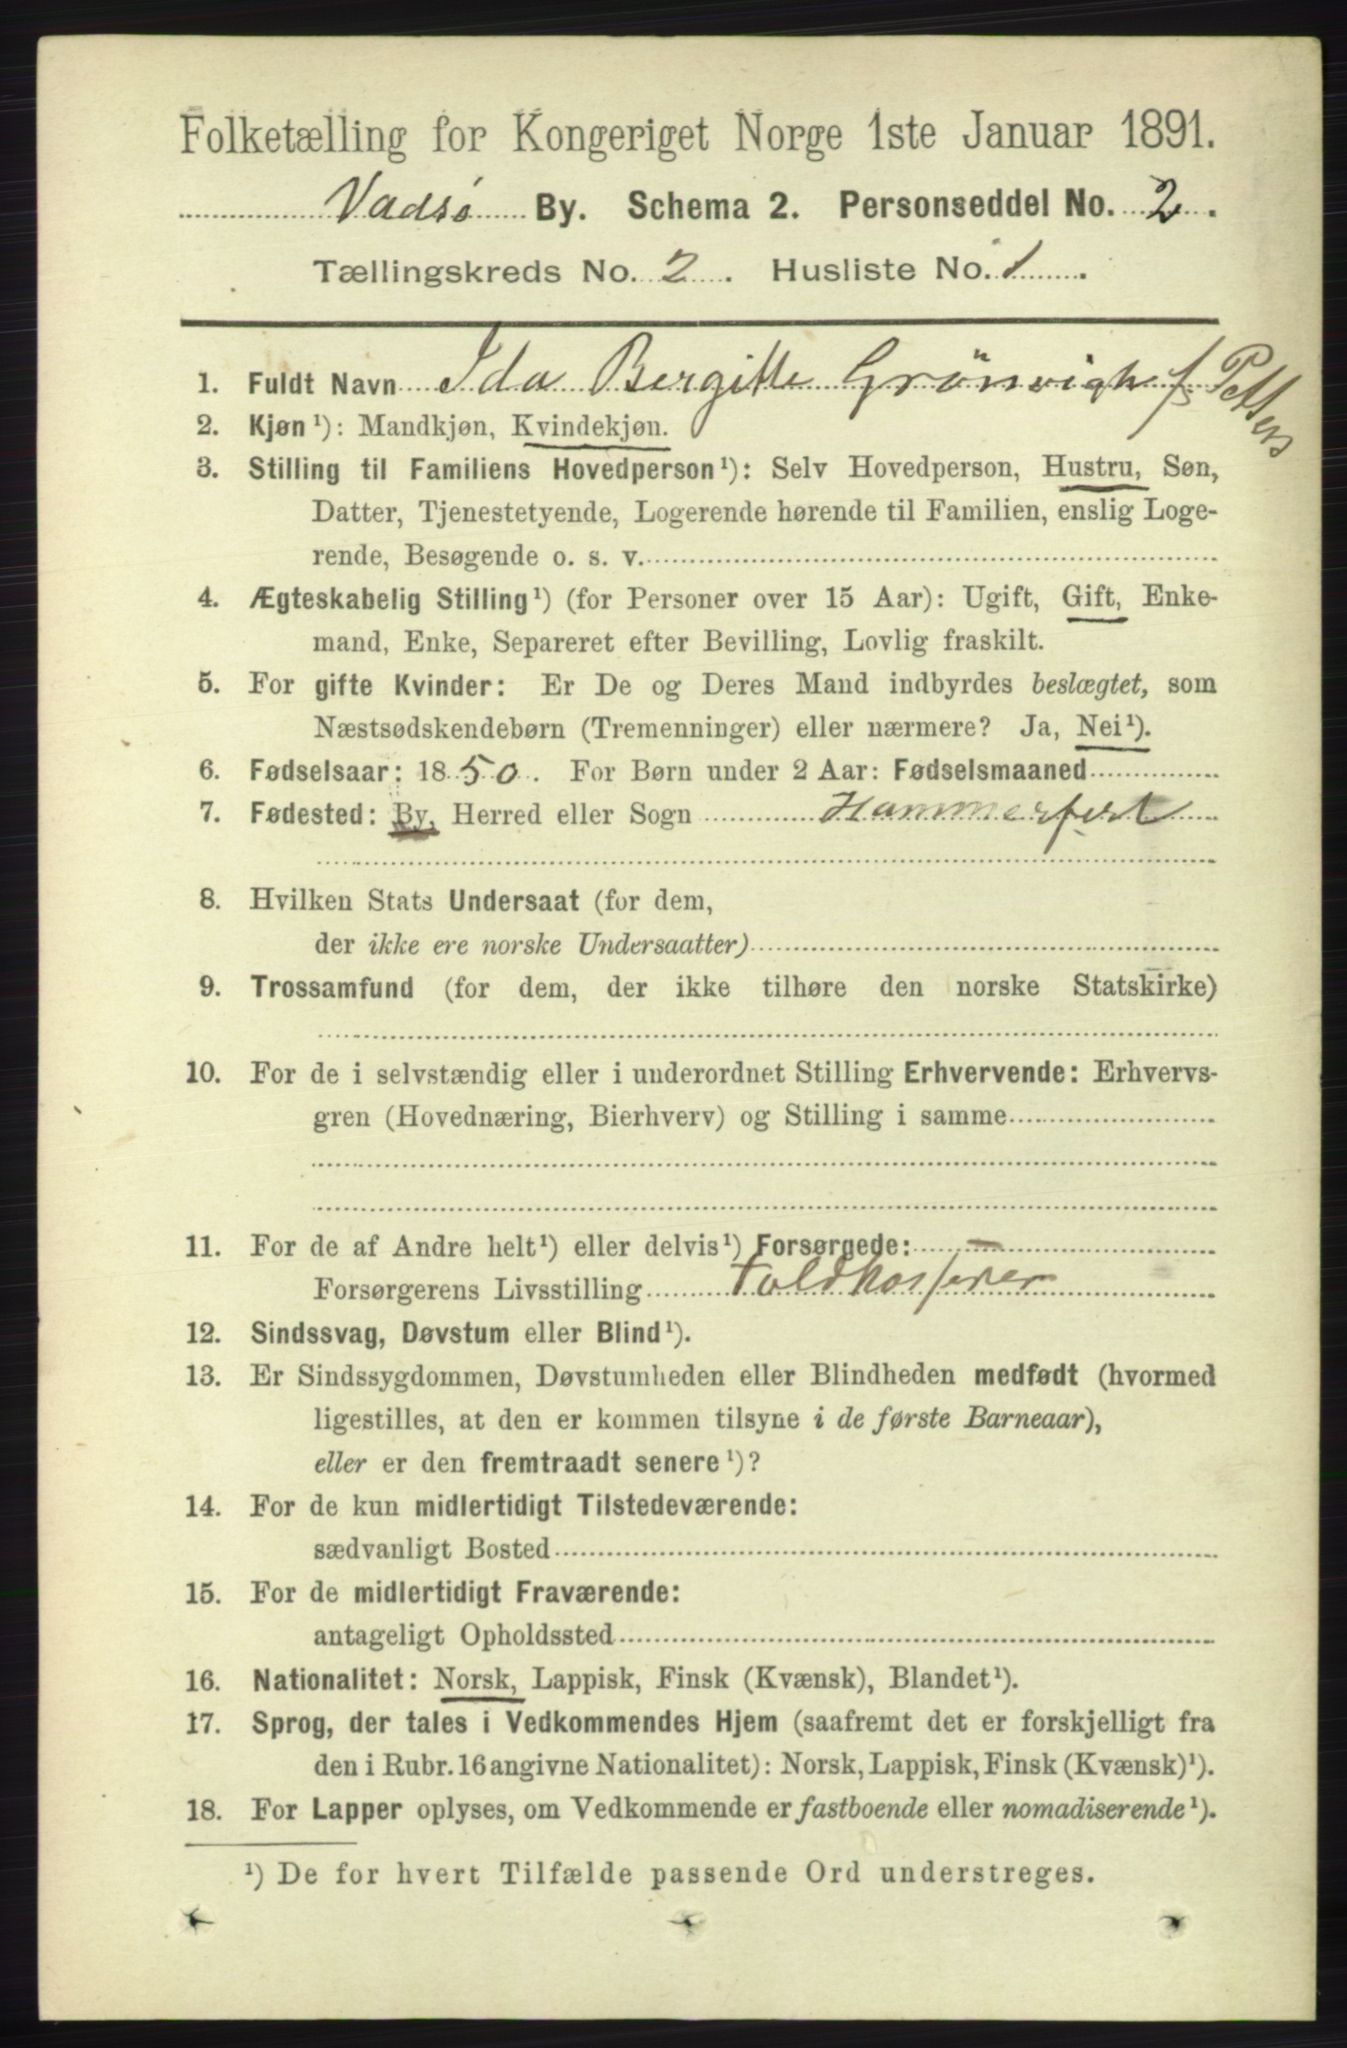 Folketælling for Kongeriget Norge 1ste Januar 1891.
Vadsø By. Schema 2. Personseddel No. 2.
Tællingskreds No. 2. Husliste No. 1.
1. Fuldt Navn Ida Bergitte Grönvigh f. Petters
2. Kjøn¹): Mandkjøn, Kvindekjøn.
3. Stilling til Familiens Hovedperson¹): Selv Hovedperson, Hustru, Søn,
Datter, Tjenestetyende, Logerende hørende til Familien, enslig Loge-
rende, Besøgende o. s. v.
4. Ægteskabelig Stilling¹) (for Personer over 15 Aar): Ugift, Gift, Enke-
mand, Enke, Separeret efter Bevilling, Lovlig fraskilt.
5. For gifte Kvinder: Er De og Deres Mand indbyrdes beslægtet, som
Næstsødskendebørn (Tremenninger) eller nærmere? Ja, Nei¹).
6. Fødselsaar: 1850. For Børn under 2 Aar: Fødselsmaaned
7. Fødested: By, Herred eller Sogn Hammerfest
8. Hvilken Stats Undersaat (for dem,
der ikke ere norske Undersaatter)
9. Trossamfund (for dem, der ikke tilhøre den norske Statskirke)
10. For de i selvstændig eller i underordnet Stilling Erhvervende: Erhvervs-
gren (Hovednæring, Bierhverv) og Stilling i samme
11. For de af Andre helt¹) eller delvis¹) Forsørgede: —
Forsørgerens Livsstilling Toldkasserer
12. Sindssvag, Døvstum eller Blind¹).
13. Er Sindssygdommen, Døvstumheden eller Blindheden medfødt (hvormed
ligestilles, at den er kommen tilsyne i de første Barneaar),
eller er den fremtraadt senere¹)?
14. For de kun midlertidigt Tilstedeværende:
sædvanligt Bosted
15. For de midlertidigt Fraværende:
antageligt Opholdssted
16. Nationalitet: Norsk, Lappisk, Finsk (Kvænsk), Blandet¹).
17. Sprog, der tales i Vedkommendes Hjem (saafremt det er forskjelligt fra
den i Rubr. 16 angivne Nationalitet): Norsk, Lappisk, Finsk (Kvænsk)¹).
18. For Lapper oplyses, om Vedkommende er fastboende eller nomadiserende¹).
¹) De for hvert Tilfælde passende Ord understreges.